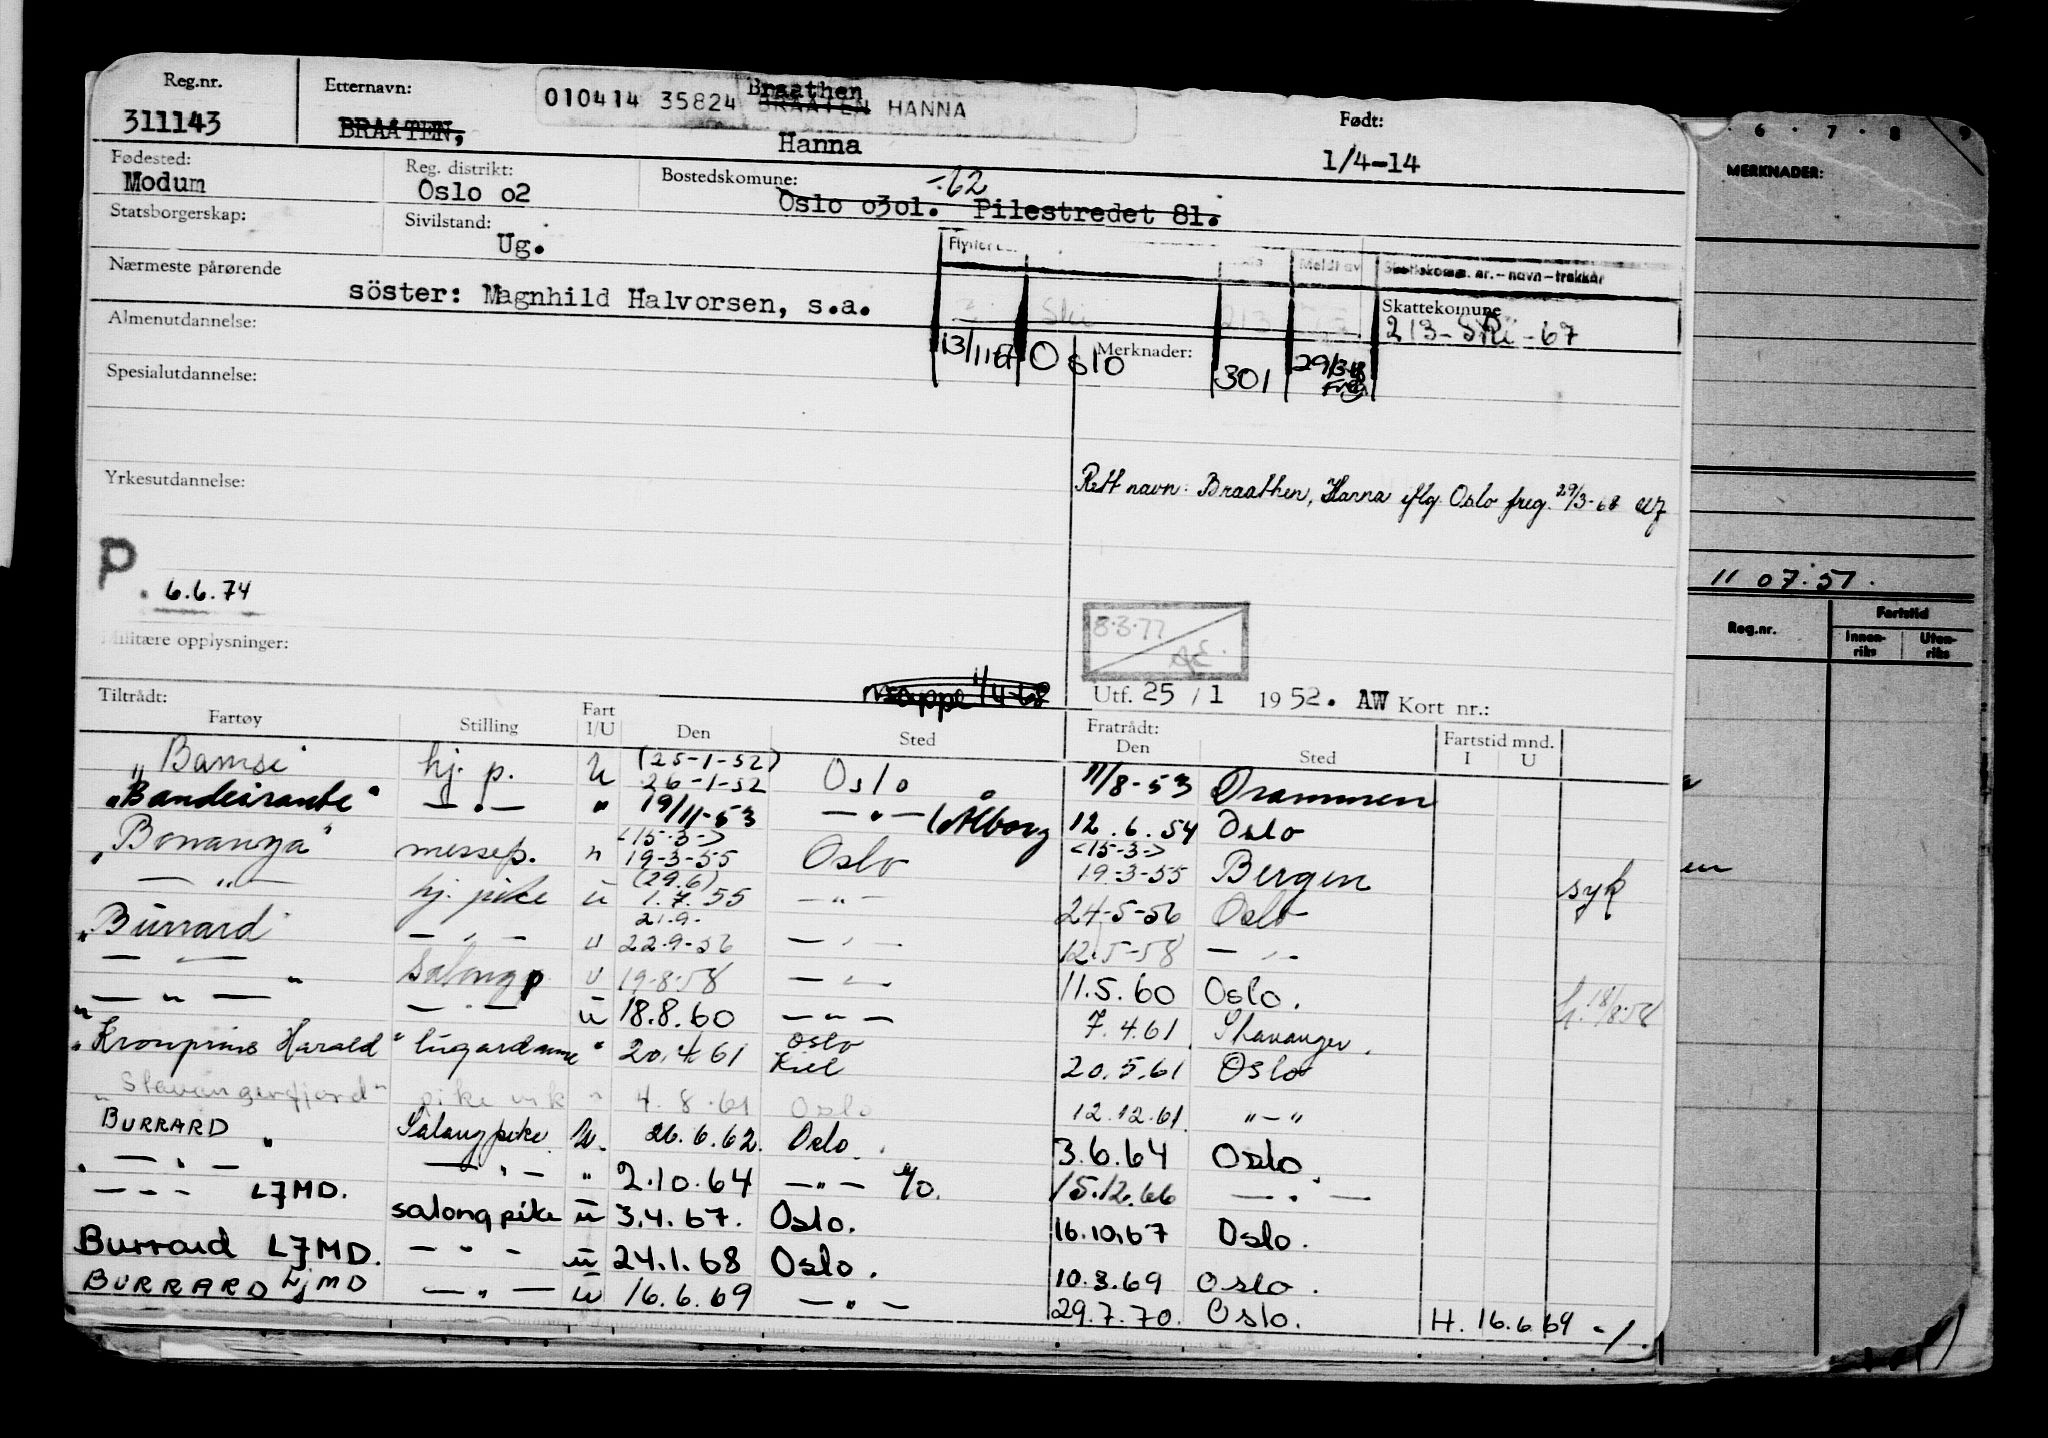 Reg.nr. Etternavn: 010414 35824 Braathen BRAATEN HANNA Født:
311143 BRAATEN, Hanna 1/4-14
Fødested: Reg. distrikt: Bostedskomune: -62
Modum Oslo 02 Oslo 0301. Pilestredet 81.
Statsborgerskap: Sivilstand:
Ug.
Meldt av Skattekomm. nr. - navn - trekkår
Nærmeste pårørende
söster: Magnhild Halvorsen, s.a.
Ski 213 Skattekomune
213 - Ski - 67
Almenutdannelse: Oslo Merknader: 301 29/3-68 Freg
Spesialutdannelse:
Yrkesutdannelse:
Rett navn: Braathen, Hanna iflg. Oslo freg. 29/3-68
P. 6.6.74
8.3.77
Militære opplysninger:
Mappe 1/4-68
Utf. 25 / 1 1952. AW Kort nr.:
Tiltrådt: Fratrådt: Fartstid mnd.
Fartøy Stilling Fart I/U Den Sted Den Sted I U
"Bamse hj. p. U (25-1-52) 26-1-52 Oslo 11/8-53 Drammen
"Bandeirante" — " — " 19/11-53 — " — Ålborg 12.6.54 Oslo
"Bonanza" messep. " <15-3-> 19-3-55 Oslo <15-3-> 19-3-55 Bergen syk
— " — hj. pike u (29.6) 1.7.55 — " — 24-5-56 Oslo
"Burrard" — " — u 21.9- 22.9-56 — " — 12.5-58 — " —
— " — salongp u 19-8-58 — " — 11.5.60 Oslo. h. 18/8-58
— " — — " — u 18.8.60 — " — 7.4.61 Stavanger.
"Kronprins Harald" lugardame " 20.4.61 Oslo Kiel 20.5.61 Oslo
"Stavangerfjord" pike vik " 4.8.61 Oslo 12.12.61. " — "
"BURRARD" Salongpike U. 26.6.62. Oslo. 3.6.64 Oslo
— " — — " — " 2.10.64 — " — 15.12.66 — " —
— " — LJMD. salongpike u 3.4.67. Oslo. 16.10.67 Oslo.
Burrard LJMD. — " — u 24.1.68 Oslo. 10.3.69 Oslo.
BURRARD LJMD — " — u 16.6.69 — " — 29.7.70. Oslo. H. 16.6.69 -/.
6 · 7 · 8 · 9
MERKNADER:
11 07.51.
Reg.nr. Fartstid
Innen-riks Uten-riks